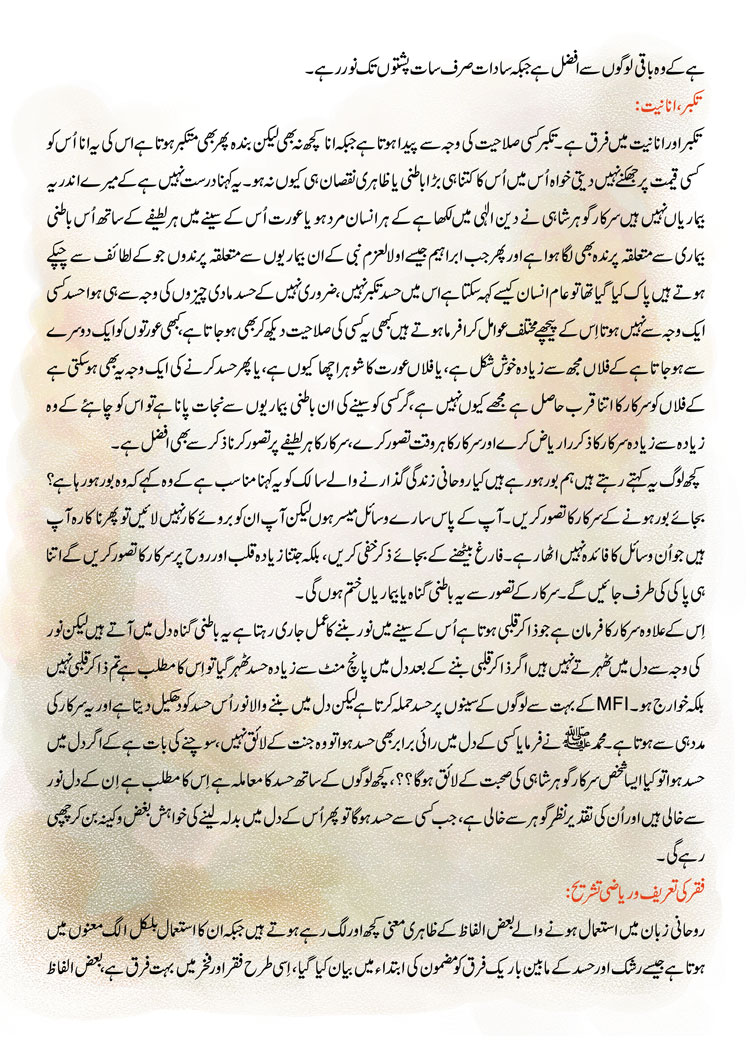 ہے کے وہ باقی لوگوں سے افضل ہے جبکہ سادات صرف سات پشتوں تک نور رہے۔
تکبر، انانیت:
تکبر اور انانیت میں فرق ہے۔ تکبر کسی صلاحیت کی وجہ سے پیدا ہوتا ہے جبکہ انا کچھ نہ بھی لیکن بندہ پھر بھی متکبر ہوتا ہے اس کی یہ انا اُس کو
کسی قیمت پر جھکنے نہیں دیتی خواہ اُس میں اُس کا کتنا ہی بڑا باطنی یا ظاہری نقصان ہی کیوں نہ ہو۔ یہ کہنا درست نہیں ہے کے میرے اندر یہ
بیماریاں نہیں ہیں سرکار گوہر شاہی نے دین الٰہی میں لکھا ہے کے ہر انسان مرد ہو یا عورت اُس کے سینے میں ہر لطیفے کے ساتھ اُس باطنی
بیماری سے متعلقہ پرندہ بھی لگا ہوا ہے اور پھر جب ابراہیم جیسے اولالعزم نبی کے ان بیماریوں سے متعلقہ پرندوں جو کے لطائف سے چپکے
ہوتے ہیں پاک کیا گیا تھا تو عام انسان کیسے کہہ سکتا ہے اس میں حسد تکبر نہیں، ضروری نہیں کے حسد مادی چیزوں کی وجہ سے ہی ہوا حسد کسی
ایک وجہ سے نہیں ہوتا اِس کے پیچھے مختلف عوامل کرافرما ہوتے ہیں کبھی یہ کسی کی صلاحیت دیکھ کر بھی ہو جاتا ہے، کبھی عورتوں کو ایک دوسرے
سے ہو جاتا ہے کے فلاں مجھ سے زیادہ خوش شکل ہے، یا فلاں عورت کا شوہر اچھا کیوں ہے، یا پھر حسد کرنے کی ایک وجہ یہ بھی ہو سکتی ہے
کے فلاں کو سرکار کا اتنا قرب حاصل ہے مجھے کیوں نہیں ہے، گر کسی کو سینے کی ان باطنی بیماریوں سے نجات پانا ہے تو اس کو چاہئے کے وہ
زیادہ سے زیادہ سرکار کا ذکر راریاض کرے اور سرکار کا ہر وقت تصور کرے، سرکار کا ہر لطیفے پر تصور کرنا ذکر سے بھی افضل ہے۔
کچھ لوگ یہ کہتے رہتے ہیں ہم بور ہو رہے ہیں کیا روحانی زندگی گذارنے والے سالک کو یہ کہنا مناسب ہے کے وہ کہے کہ وہ بور ہو رہا ہے؟
بجائے بور ہونے کے سرکار کا تصور کریں۔ آپ کے پاس سارے وسائل میسر ہوں لیکن آپ ان کو بروئے کار نہیں لائیں تو پھر ناکارہ آپ
ہیں جو اُن وسائل کا فائدہ نہیں اٹھا رہے۔ فارغ بیٹھنے کے بجائے ذکر خفی کریں، بلکہ جتنا زیادہ قلب اور روح پر سرکار کا تصور کریں گے اتنا
ہی پاکی کی طرف جائیں گے۔ سرکار کے تصور سے یہ باطنی گناہ یا بیماریاں ختم ہوں گی۔
اِس کے علاوہ سرکار کا فرمان ہے جو ذاکر قلبی ہوتا ہے اُس کے سینے میں نور بننے کا عمل جاری رہتا ہے یہ باطنی گناہ دل میں آتے ہیں لیکن نور
کی وجہ سے دل میں ٹھہرتے نہیں ہیں اگر ذاکر قلبی بننے کے بعد دل میں پانچ منٹ سے زیادہ حسد ٹھہر گیا تو اِس کا مطلب ہے تم ذاکر قلبی نہیں
بلکہ خوارج ہو۔ MFI کے بہت سے لوگوں کے سینوں پر حسد حملہ کرتا ہے لیکن دل میں بننے والا نور اُس حسد کو دھکیل دیتا ہے اور یہ سرکار کی
مدد ہی سے ہوتا ہے۔ محمد ﷺ نے فرمایا کسی کے دل میں رائی برابر بھی حسد ہوا تو وہ جنت کے لائق نہیں، سوچنے کی بات ہے کے اگر دل میں
حسد ہوا تو کیا ایسا شخص سرکار گوہر شاہی کی صحبت کے لائق ہوگا؟؟، کچھ لوگوں کے ساتھ حسد کا معاملہ ہے اِس کا مطلب ہے اِن کے دل نور
سے خالی ہیں اور اُن کی تقدیر نظرِ گوہر سے خالی ہے، جب کسی سے حسد ہوگا تو پھر اُس کے دل میں بدلہ لینے کی خواہش بغض و کینہ بن کر چھپی
رہے گی۔
فقر کی تعریف و ریاضی تشریح:
روحانی زبان میں استعمال ہونے والے بعض الفاظ کے ظاہری معنی کچھ اور لگ رہے ہوتے ہیں جبکہ ان کا استعمال بلکل الگ معنوں میں
ہوتا ہے جیسے رشک اور حسد کے مابین باریک فرق کو مضمون کی ابتداء میں بیان کیا گیا، اِسی طرح فقر اور فخر میں بہت فرق ہے، بعض الفاظ